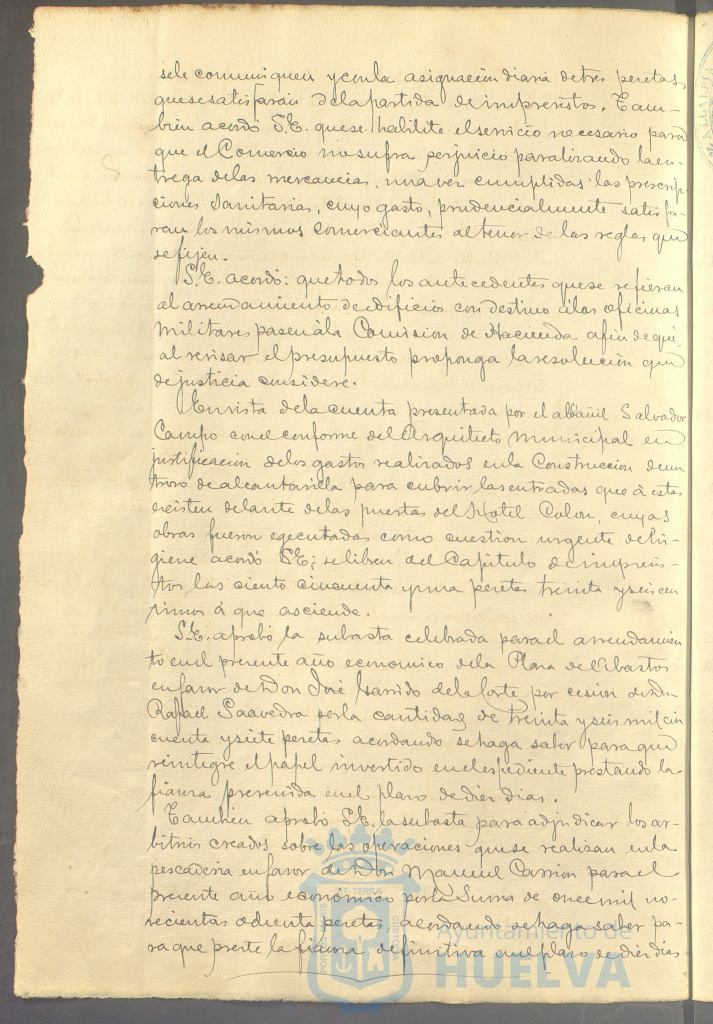 sele comuniquen y con la asignacion diaria de tres pesetas
que se satisfarán de la partida de imprevistos. Tam-
bien acordó S.E. que se habilite el servicio necesario para
que el Comercio no sufra perjuicio paralizando la en-
trega de las mercancias, una vez cumplidas las prescrip-
ciones Sanitarias, cuyo gasto, prudencialmente satisfa-
ran los mismos comerciantes al tenor de las reglas que
se fijen.
S.E. acordó: que todos los antecedentes que se refieran
al arrendamiento de edificios con destino á las oficinas
militares pasen á la Comision de Hacienda afin de que
al revisar el presupuesto proponga la resolucion que
de justicia considere.
En vista de la cuenta presentada por el albañil Salvador
Campo con el conforme del Arquitecto Municipal en
justificacion de los gastos realizados en la Construccion de un
trozo de alcantarilla para cubrir las entradas que á esta
existen delante de las puertas del Hotel Colon, cuyas
obras fueron egecutadas como cuestion urgente de hi-
giene acordó S.E; se libren del Capitulo de imprevis-
tos, las ciento cincuenta y una pesetas treinta y seis cen
timos á que asciende.
S.E. aprobó la subasta celebrada para el arrendamien
to en el presente año economico de la Plaza de Abastos
en favor de Don José Garrido de la Corte por cesion de Don
Rafael Saavedra por la cantidad de treinta y seis mil cin
cuenta y siete pesetas acordando se haga saber para que
reintegre el papel invertido en el espediente prestando la
fianza prevenida en el plazo de diez dias.
Tambien aprobó S.E. la subasta para adjudicar los ar-
bitrios creados sobre las operaciones que se realizan en la
pescaderia en favor de Don Manuel Carrion para el
presente año economico por la Suma de once mil no-
vecientas ochenta pesetas, acordando se haga saber pa-
ra que preste la fianza definitiva en el plazo de diez dias
Ayuntamiento de
HUELVA